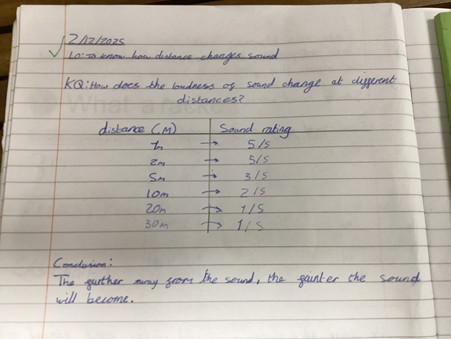 2/12/2025
LO: To know how distance changes sound
KQ: How does the loudness of sound change at different
distances?
distance (M) Sound rating
1m → 5/5
2m → 5/5
5m → 3/5
10m → 2/5
20m → 1/5
30m → 1/5
Conclusion:
The further away from the sound, the fainter the sound
will become.